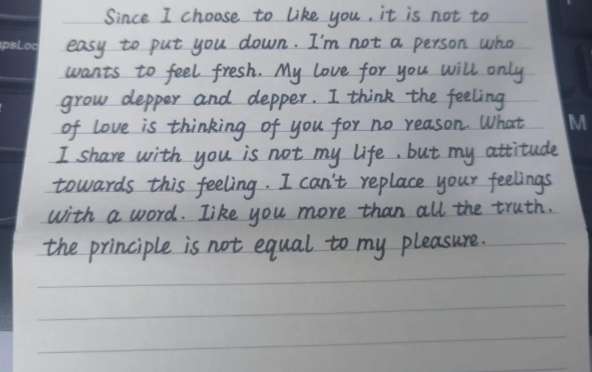 Since I choose to like you . it is not to
easy to put you down. I'm not a person who
wants to feel fresh. My love for you will only
grow depper and depper. I think the feeling
of love is thinking of you for no reason. What
I share with you is not my life . but my attitude
towards this feeling . I can't replace your feelings
with a word. Iike you more than all the truth.
the principle is not equal to my pleasure.
psLoc
M